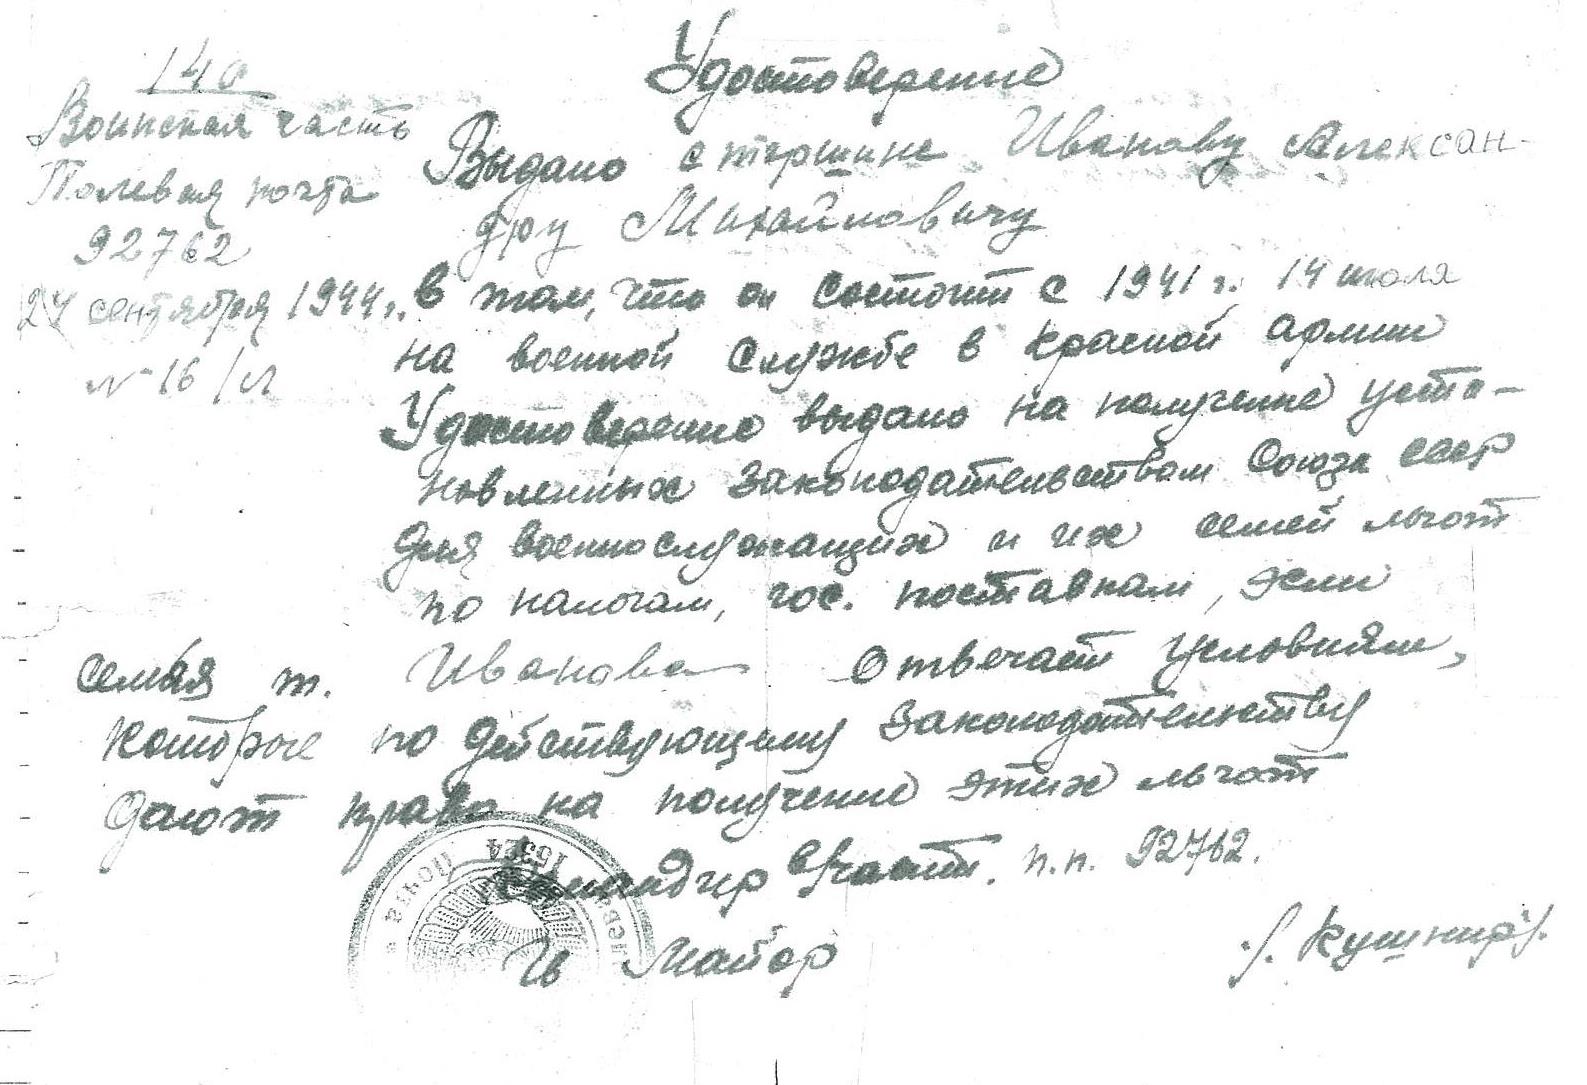 14а
Воинская часть
Полевая почта
92762
24 сентября 1944 г.
№ 16/
Удостоверение
Выдано старшине Иванову Алексан-
дру Михайловичу
в том, что он состоит с 1941 г. 14 июля
на военной службе в Красной армии
Удостоверение выдано на получение уста-
новленных законодательством Союза ССР
для военнослужащих и их семей льгот
по налогам, гос. поставкам, если
семья т. Иванова отвечает условиям,
которые по действующему законодательству
дают право на получение этих льгот
Командир части. п.п. 92762.
Майор /. Кушнир/.
Полевая почта